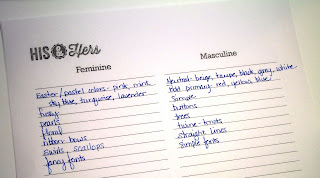 HIS & Hers
Feminine
Easter/pastel colors - pink, mint,
sky blue, turquoise, lavender
fussy
pearls
floral
ribbon bows
swirls, scallops
fancy fonts
Masculine
Neutral - beige, taupe, black, gray, white
bold primary - red, yellow, blue
Simple
buttons
trees
twine - knots
straight lines
Simple fonts